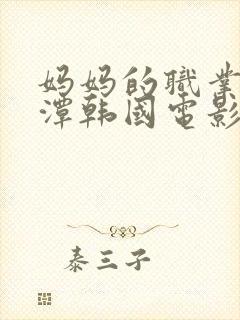 妈妈的職業
潭韩國電影
泰三子